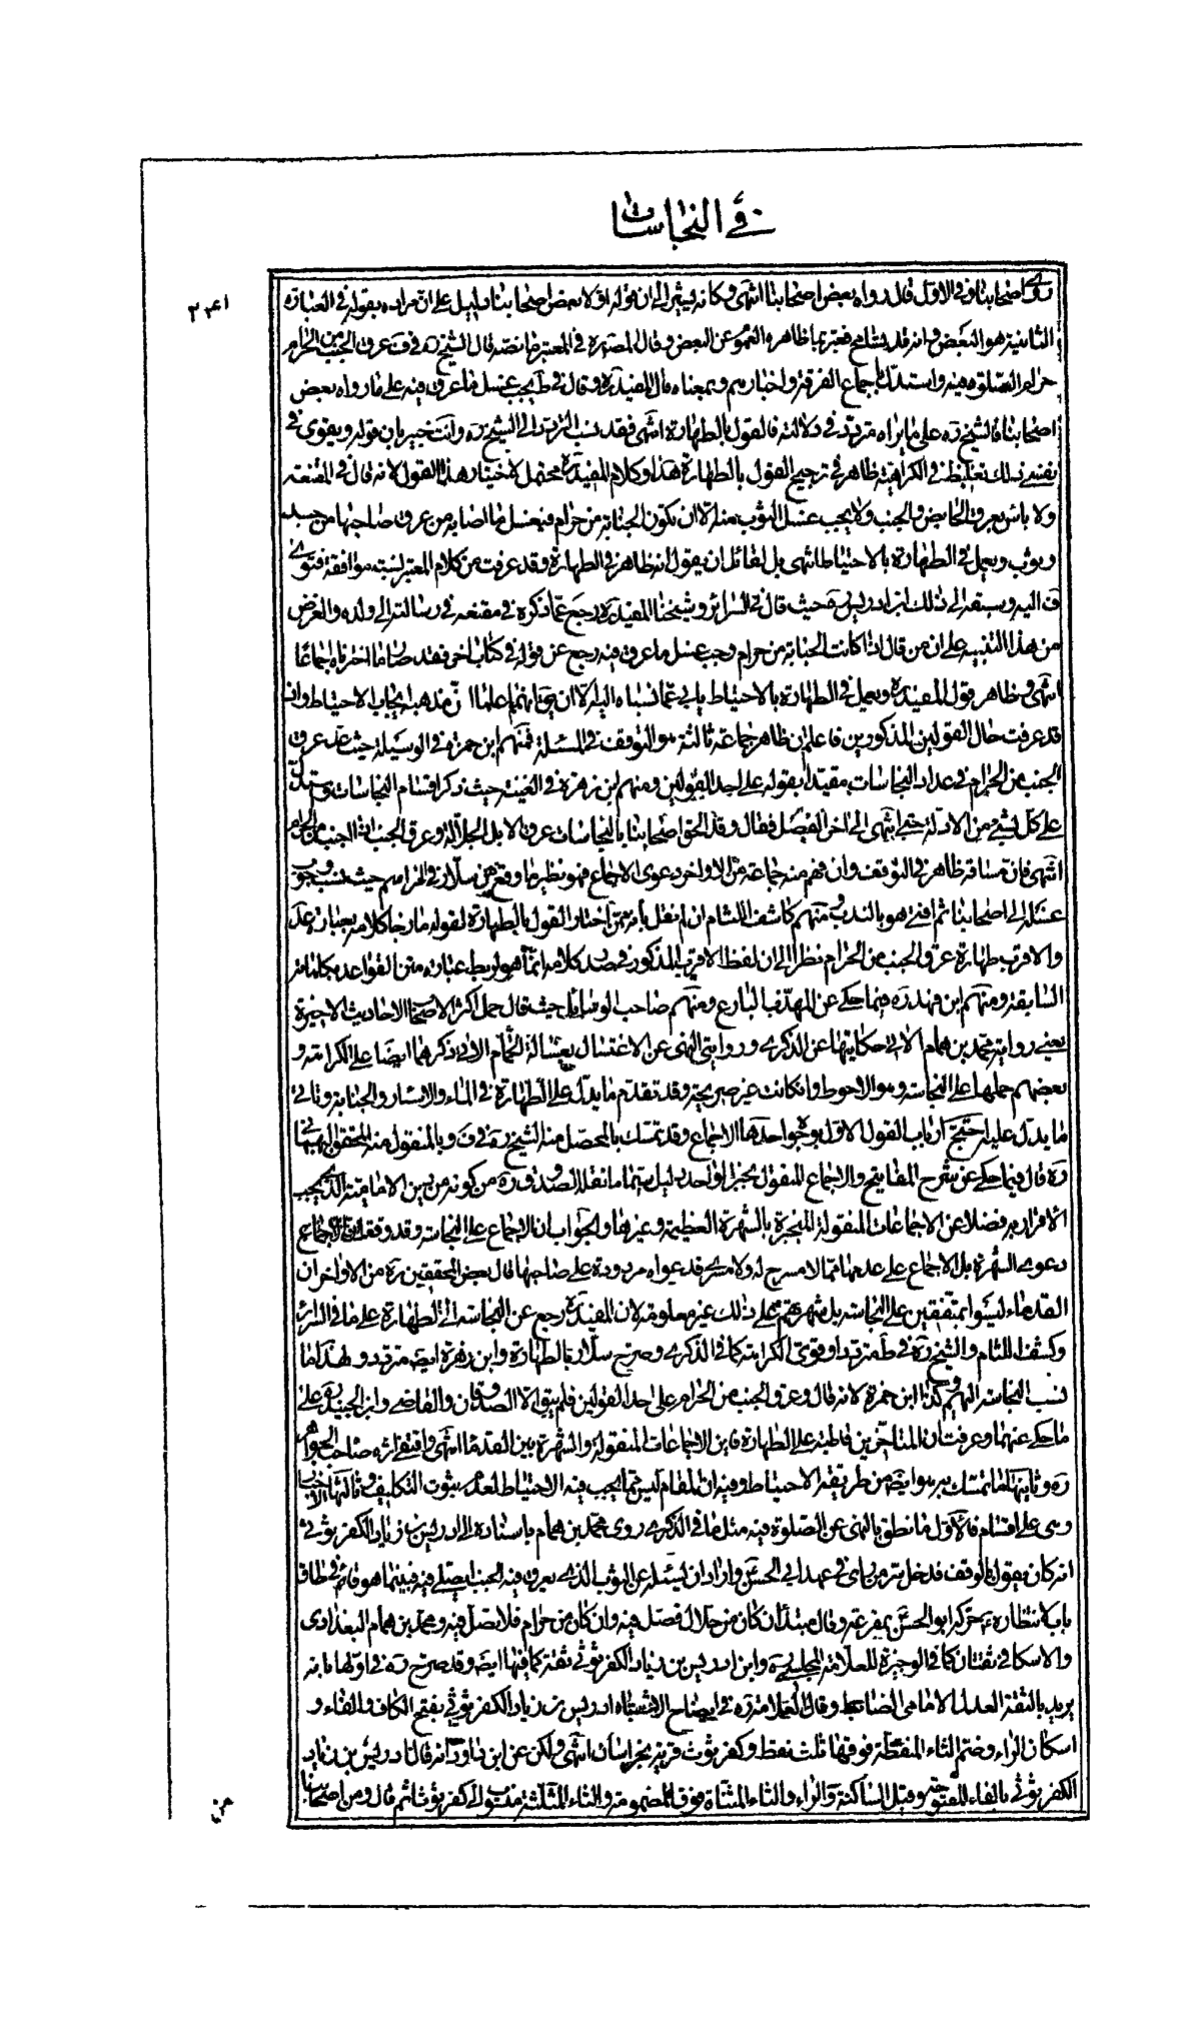 في النجاسات
اصحابنا وفي الاول قال رواه بعض اصحابنا انتهى وكانه يشير الى ان قوله اولا بعض اصحابنا دليل على ان مراده بقوله في العبارة
الثانية هو البعض وانه قد يتسامح فعبر بما ظاهره العموم عن البعض وقال المص ره في المعتبر ما نصه قال الشيخ ره في ف عرق الجنب من الحرام
حرام الصلوة فيه واستدل باجماع الفرقة واخبارهم وبمعناه قال المفيد ره وقال في ط يجب غسل ما عرق فيه على ما رواه بعض
اصحابنا فالشيخ ره على ما يراه متردد في دلالته فالقول بالطهارة انتهى فقد نسب التردد الى الشيخ ره وانت خبير بان قوله ويقوى في
نفسي ذلك تغليظ في الكراهية ظاهر في ترجيح القول بالطهارة هذا وكلام المفيد ره محتمل لاختيار هذا القول لانه قال في المقنعة
ولا باس بعرق الحايض والجنب ولا يجب غسل الثوب منه الا ان تكون الجنابة من حرام فيغسل ما اصابه من عرق صاحبها من جسد
وثوب ويعمل في الطهارة بالاحتياط انتهى بل لقائل ان يقول انه ظاهر في الطهارة وقد عرفت من كلام المعتبر نسبة موافقة فتوى
ف اليه وسبقه الى ذلك ابن ادريس ره حيث قال في السرائر وشيخنا المفيد ره رجع عما ذكره في مقنعه في رسالته الى ولده والغرض
من هذا التنبيه على ان من قال اذا كانت الجنابة من حرام وجب غسل ما عرق فيه رجع عن قوله في كتاب اخر فقد صار ما اخترناه اجماعا
انتهى وظاهر قول المفيد ره ويعمل في الطهارة بالاحتياط يابى عما نسباه اليه الا ان علما ان مذهبه ايجاب الاحتياط واذ
قد عرفت حال القولين المذكورين فاعلم ان ظاهر جماعة ثالثة هو التوقف في المسئلة فمنهم ابن حمزة في الوسيلة حيث عد عرق
الجنب من الحرام في عداد النجاسات مقيدا بقوله على احد القولين ومنهم ابن زهرة في الغنية حيث ذكر اقسام النجاسات
على كل شيء من الادلة حتى انتهى الى اخر الفصل فقال وقد الحق اصحابنا بالنجاسات عرق الابل الجلالة وعرق الجنب اذا اجنب من الحرام
انتهى فان مساقه ظاهر في التوقف وان فهم منه جماعة من الاواخر دعوى الاجماع فهو نظير ما وقع من سلار في المراسم حيث نسب وجوب
غسله الى اصحابنا ثم افتى هو بالندب ومنهم كاشف اللثام ان لم نقل بانه ممن اختار القول بالطهارة لقوله مازجا كلامه بعبارة عد
والاقرب طهارة عرق الجنب من الحرام نظرا الى ان لفظ الاقرب المذكور في صدر كلامه انما هو لربط عبارة متن القواعد بكلماته
السابقة ومنهم ابن فهد ره فيما حكى عن المهذب البارع ومنهم صاحب الوسايل حيث قال حمل اكثر الاصحاب الاحاديث الاخيرة
يعني رواية محمد بن همام الاتي حكايتها عن الذكرى وروايتي النهي عن الاغتسال بغسالة الحمام الاتي ذكرهما ايضا على الكراهة و
بعضهم حملها على النجاسة وهو الاحوط وان كانت غير صريحة وقد تقدم ما يدل على الطهارة في الماء والاسار والجنابة وياتي
ما يدل عليه احتج ارباب القول الاول بوجوه احدها الاجماع وقد تمسك بالمحصل منه الشيخ ره في ف وبالمنقول منه المحقق البهبهاني
ره قال فيما حكى عن شرح المفاتيح والاجماع المنقول بخبر الواحد دليل سيما ما نقله الصدوق ره من كونه من دين الامامية الذي يجب
الاقرار به فضلا عن الاجماعات المنقولة المنجبرة بالشهرة العظيمة وغيرها والجواب ان الاجماع على النجاسة وقد وقع
دعوى الشهرة بل الاجماع على عدمها مما لا مسرح له ولا مسرى فدعواه مردودة على صاحبها قال بعض المحققين ره من الاواخر ان
القدماء ليسوا بمتفقين على النجاسة بل شهرتهم على ذلك غير معلومة لان المفيد ره رجع عن النجاسة الى الطهارة على ما في السرائر
وكشف اللثام والشيخ ره في ط متردد او قوى الكراهة كما في الذكرى وصرح سلار بالطهارة وابن زهرة ايضا متردد ولهذا ما
نسب النجاسة اليهم وكذا ابن حمزة لانه قال وعرق الجنب من الحرام على احد القولين فلم يبق الا الصدوقان والقاضي وابن الجنيد على
ما حكى عنهما وعرفت ان المتاخرين قاطبة على الطهارة فاين الاجماعات المنقولة والشهرة بين القدماء انتهى واقتفى اثره صاحب الجواهر
ره وثانيها ما تمسك به هو ايضا من طريقة الاحتياط وفيه ان المقام ليس مما يجب فيه الاحتياط لعدم ثبوت التكليف وثالثها الاخبار
وهي على اقسام فالاول ما نطق بالنهي عن الصلوة فيه مثل ما في الذكرى روى محمد بن همام باسناده الى ادريس بن زياد الكفرتوثي
انه كان يقول بالوقف فدخل سر من راى في عهد ابي الحسن واراد ان يسئله عن الثوب الذي يعرق فيه الجنب ايصلي فيه فبينما هو قائم في طاق
باب لانتظاره حركه ابو الحسن بمقرعة وقال مبتدئا ان كان من حلال فصل فيه وان كان من حرام فلا تصل فيه ومحمد بن همام البغدادي
والاسكافي ثقتان كما في الوجيزة للعلامة المجلسي ره وابن ادريس بن زياد الكفرتوثي ثقة كما فيها ايضا وقد صرح ره في اولها بانه
يريد بالثقة العدل الامامي الضابط وقال العلامة ره في ايضاح الاشتباه ادريس بن زياد الكفرتوثي بفتح الكاف والفاء و
اسكان الراء وضم التاء المنقطة فوقها ثلث نقط وكفرتوث قرية بخراسان انتهى ولكن عن ابن داود انه قال ادريس بن زياد
الكفرتوثي بالفاء المفتوحة وقيل الساكنة والراء والتاء المثناة فوق المضمومة والثاء المثلثة منسوب الى كفرتوثا ثم قال ومن اصحابنا